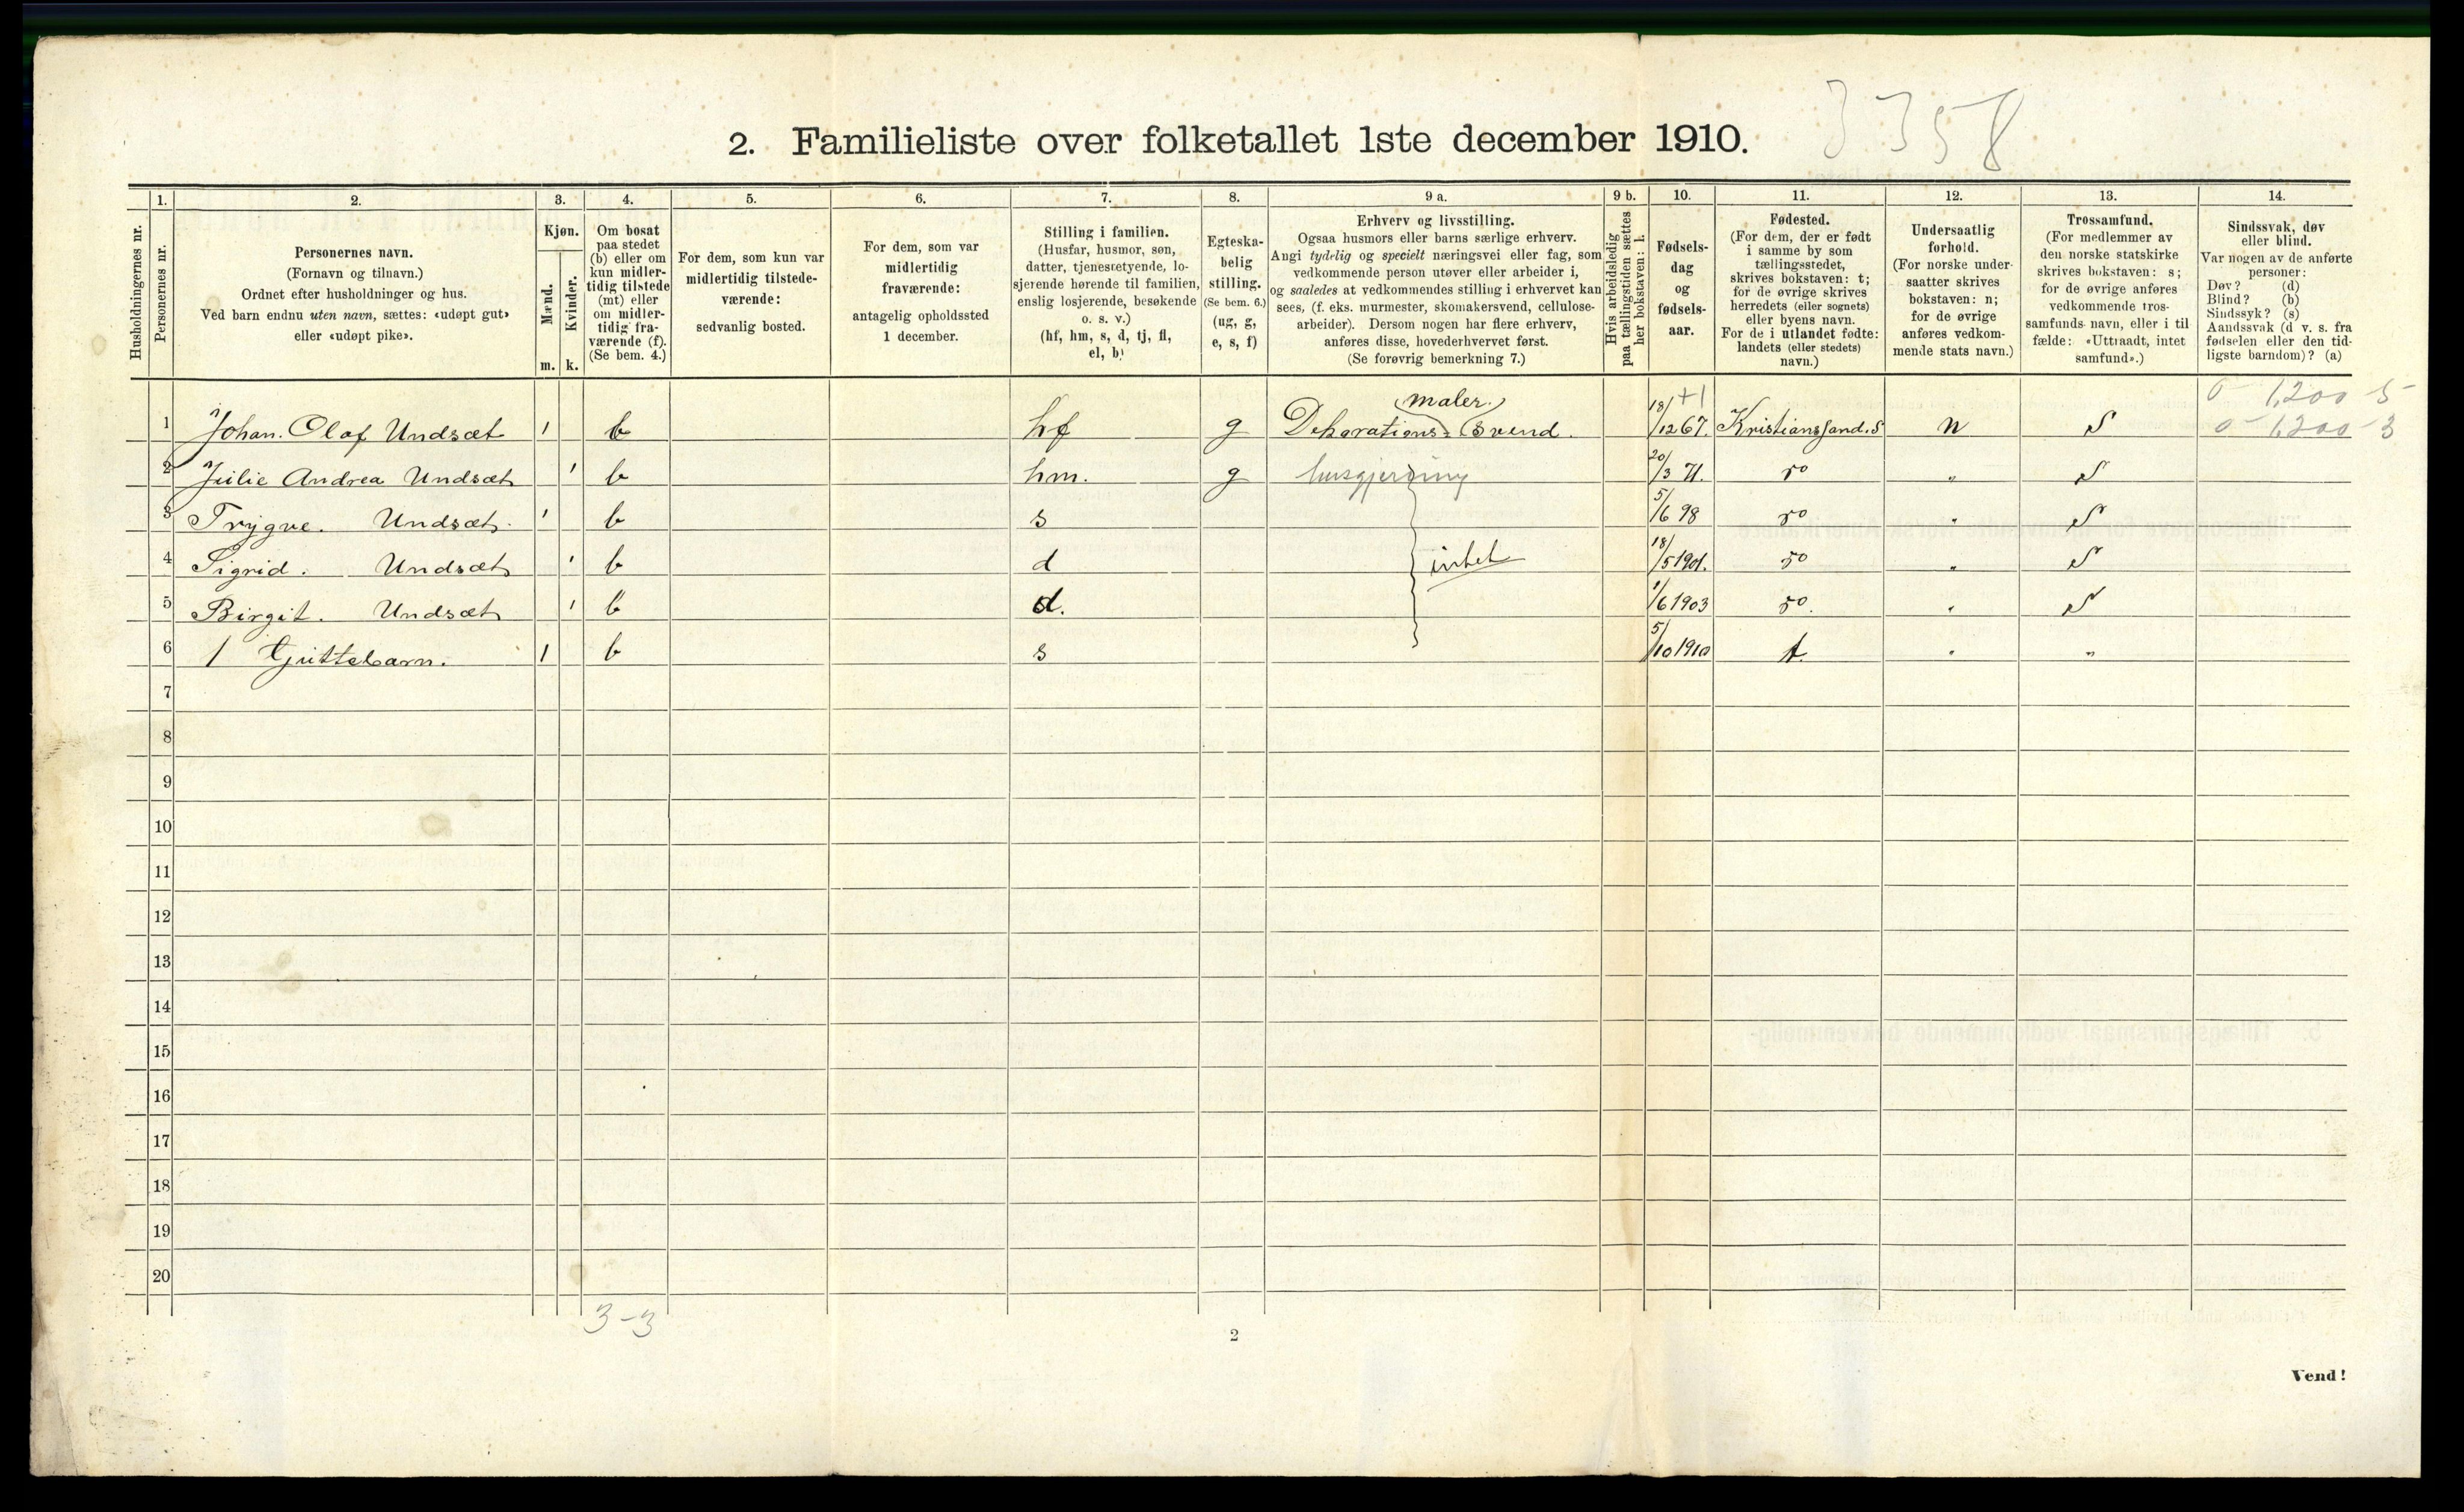 3358
2. Familieliste over folketallet 1ste december 1910.
1. 2. 3. 4. 5. 6. 7. 8. 9 a. 9 b. 10. 11. 12. 13. 14.
Husholdningernes nr.
Personernes nr.
Personernes navn.
(Fornavn og tilnavn.)
Ordnet efter husholdninger og hus.
Ved barn endnu uten navn, sættes: «udøpt gut»
eller «udøpt pike».
Kjøn.
Mænd.
Kvinder.
m. k.
Om bosat
paa stedet
(b) eller om
kun midler-
tidig tilstede
(mt) eller
om midler-
tidig fra-
værende (f).
(Se bem. 4.)
For dem, som kun var
midlertidig tilstede-
værende:
sedvanlig bosted.
For dem, som var
midlertidig
fraværende:
antagelig opholdssted
1 december.
Stilling i familien.
(Husfar, husmor, søn,
datter, tjenestetyende, lo-
sjerende hørende til familien,
enslig losjerende, besøkende
o. s. v.)
(hf, hm, s, d, tj, fl,
el, b)
Egteska-
belig
stilling.
(Se bem. 6.)
(ug, g,
e, s, f)
Erhverv og livsstilling.
Ogsaa husmors eller barns særlige erhverv.
Angi tydelig og specielt næringsvei eller fag, som
vedkommende person utøver eller arbeider i,
og saaledes at vedkommendes stilling i erhvervet kan
sees, (f. eks. murmester, skomakersvend, cellulose-
arbeider). Dersom nogen har flere erhverv,
anføres disse, hovederhvervet først.
(Se forøvrig bemerkning 7.)
Hvis arbeidsledig
paa tællingstiden sættes
her bokstaven: l.
Fødsels-
dag
og
fødsels-
aar.
Fødested.
(For dem, der er født
i samme by som
tællingsstedet,
skrives bokstaven: t;
for de øvrige skrives
herredets (eller sognets)
eller byens navn.
For de i utlandet fødte:
landets (eller stedets)
navn.)
Undersaatlig
forhold.
(For norske under-
saatter skrives
bokstaven: n;
for de øvrige
anføres vedkom-
mende stats navn.)
Trossamfund.
(For medlemmer av
den norske statskirke
skrives bokstaven: s;
for de øvrige anføres
vedkommende tros-
samfunds navn, eller i til-
fælde: «Uttraadt, intet
samfund».)
Sindssvak, døv
eller blind.
Var nogen av de anførte
personer:
Døv? (d)
Blind? (b)
Sindssyk? (s)
Aandssvak (d v. s. fra
fødselen eller den tid-
ligste barndom)? (a)
maler. +1 0 1,200 5
1 Johan. Olaf Undsæt 1 b hf g Dekorations- svend. 18/12 67. Kristianssand. S n S 0 1,200 3
2 Julie Andrea Undsæt 1 b hm. g husgjerning 20/3 71. do " S
3 Trygve. Undsæt. 1 b s 5/6 98 do " S
4 Sigrid. Undsæt 1 b d intet 18/5 1901. do " S
5 Birgit. Undsæt 1 b d. 1/6 1903 do. " S
6 1 Guttebarn. 1 b s 5/10 1910 t. " "
7
8
9
10
11
12
13
14
15
16
17
18
19
20
3-3
2
Vend!